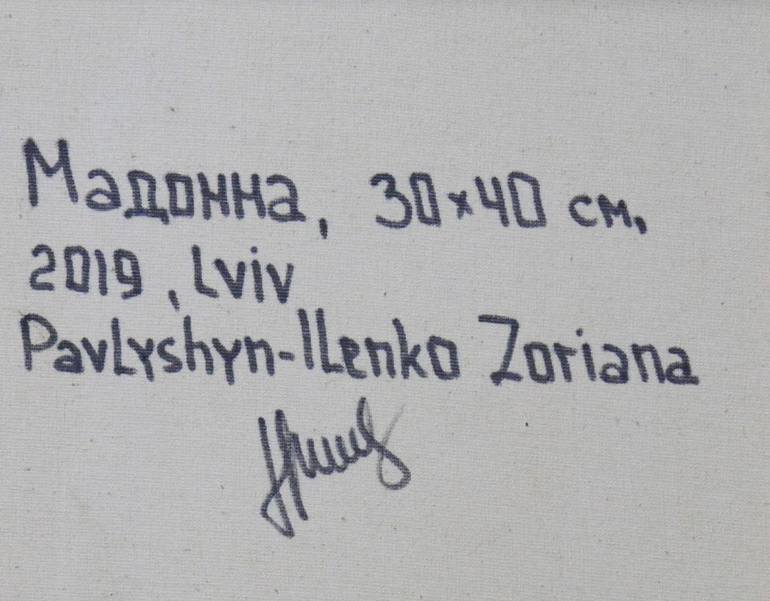 Мадонна, 30×40 см,
2019, Lviv
Pavlyshyn-Ilenko Zoriana